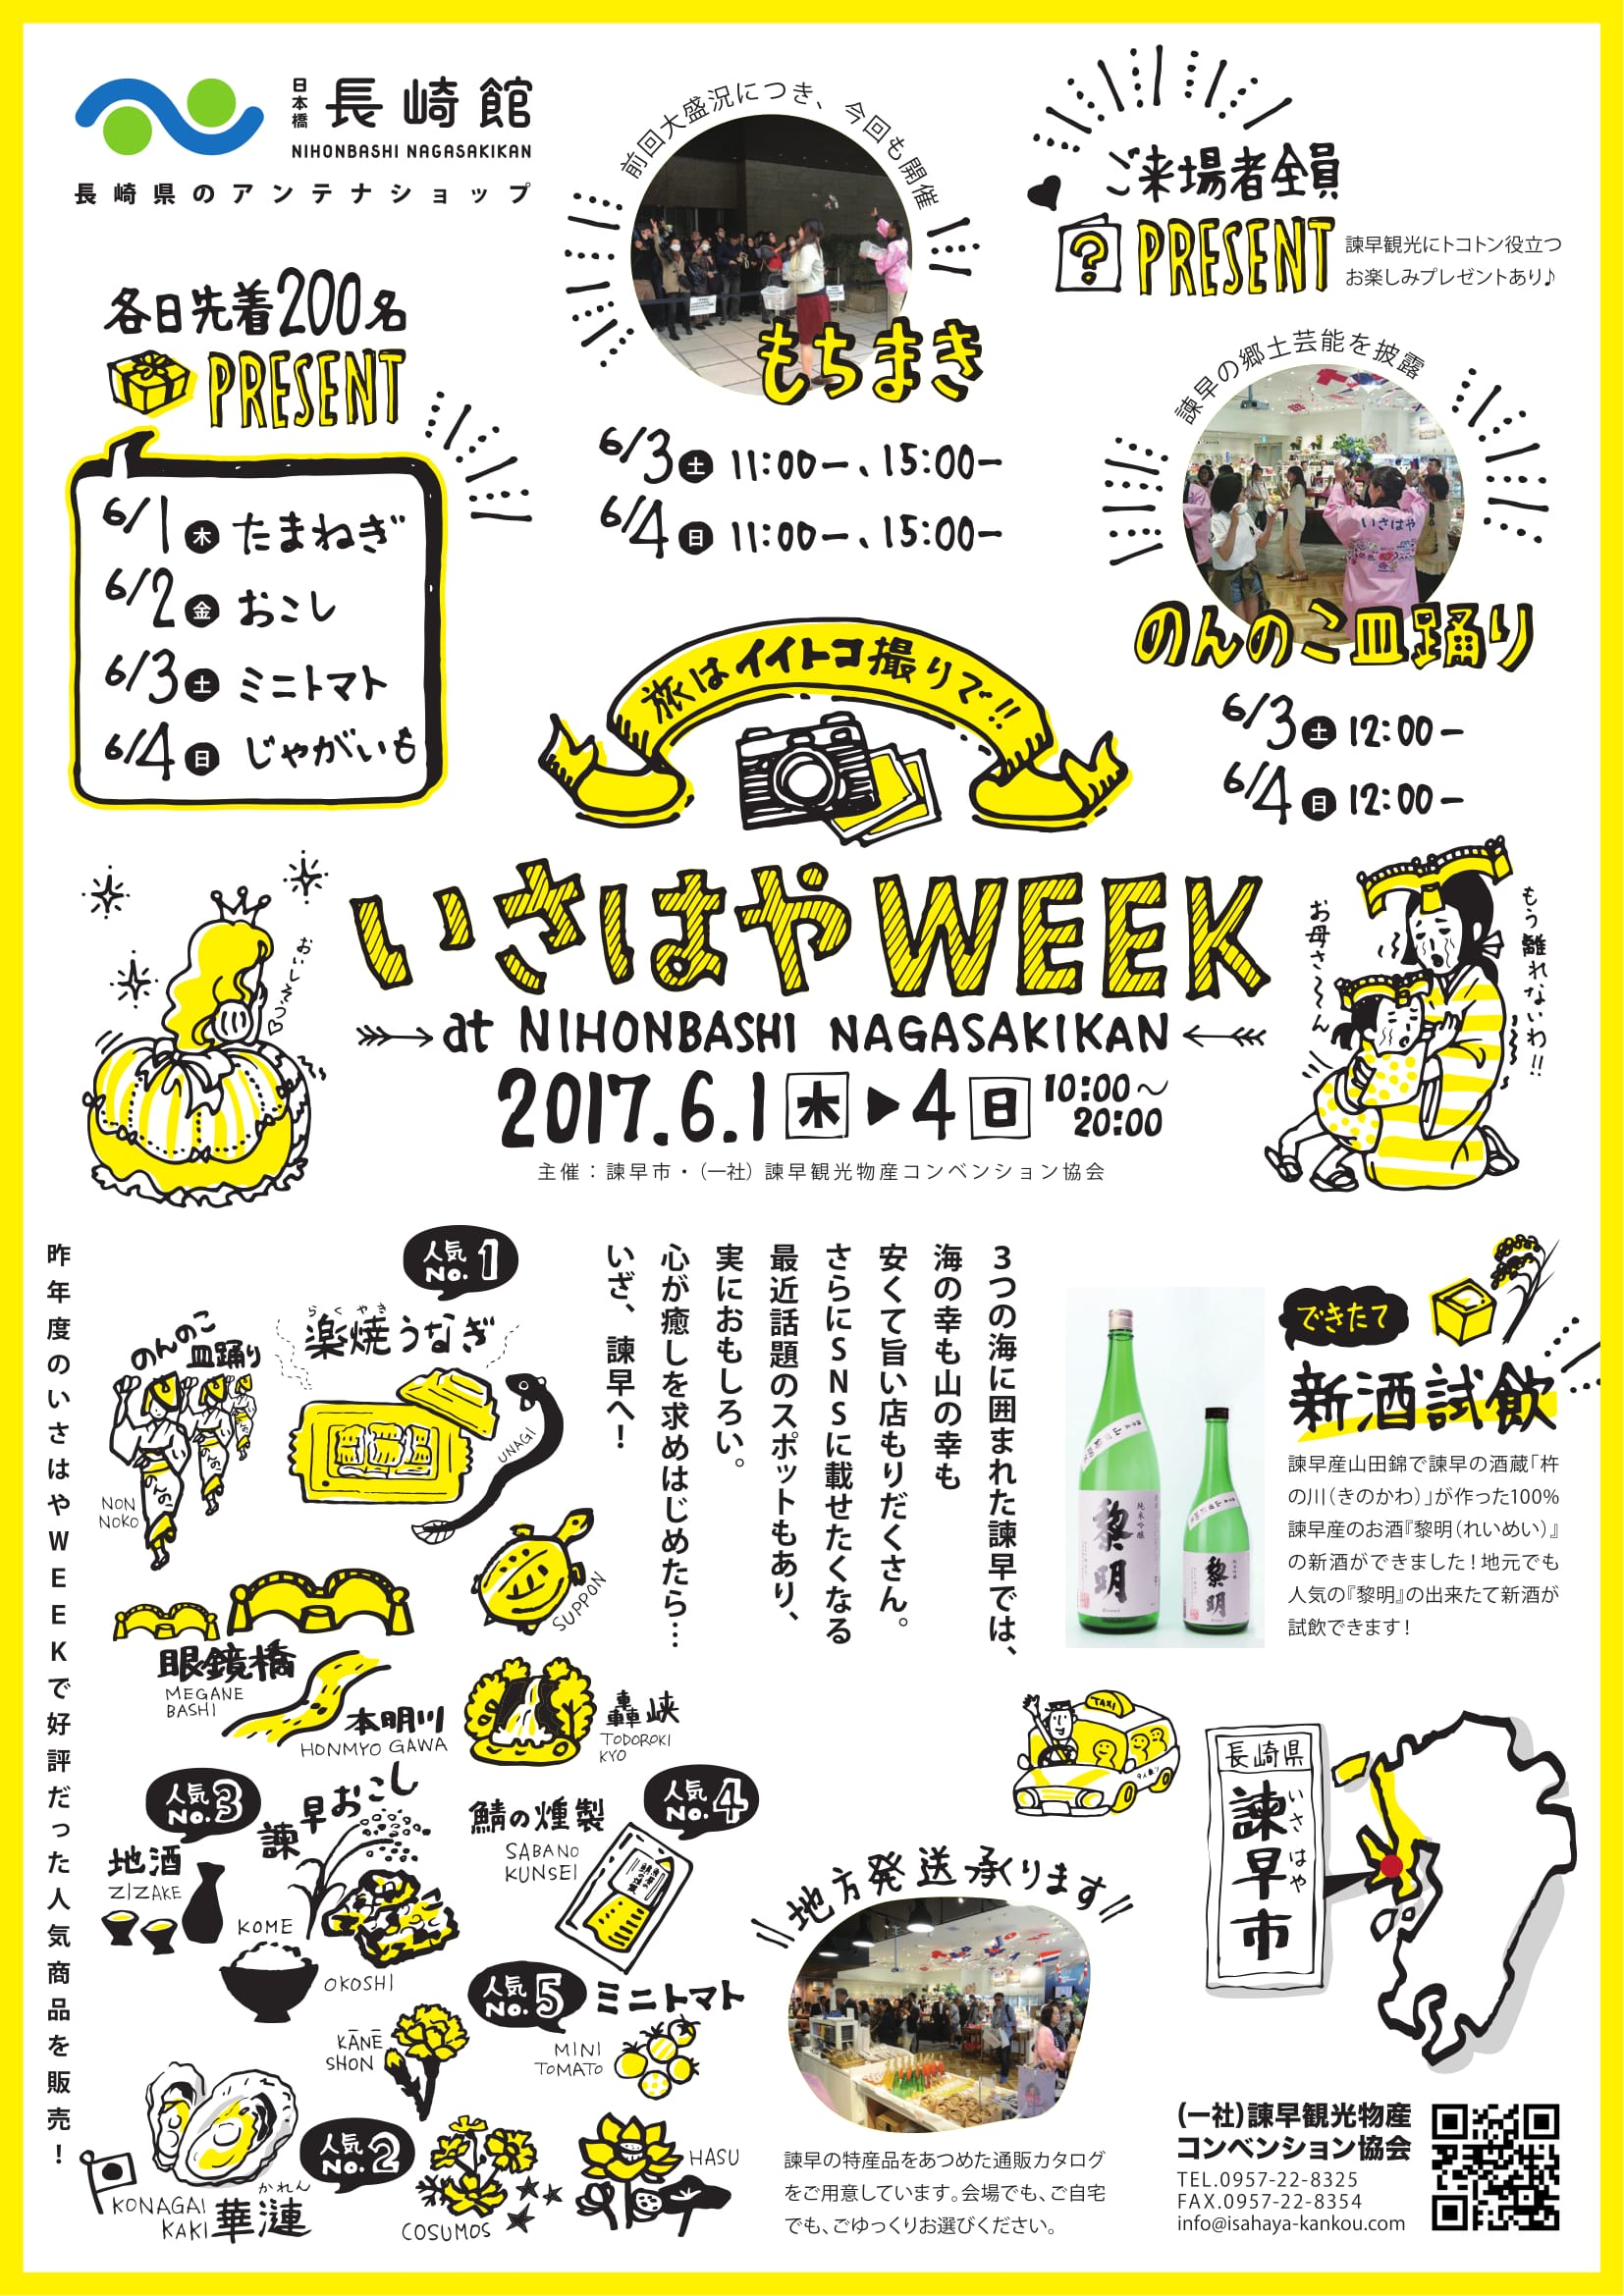 日本橋 長崎館
NIHONBASHI NAGASAKIKAN
長崎県のアンテナショップ
前回大盛況につき、今回も開催
もちまき
6/3土 11:00ー、15:00ー
6/4日 11:00ー、15:00ー
ご来場者全員
? PRESENT
諫早観光にトコトン役立つ
お楽しみプレゼントあり♪
各日先着200名
PRESENT
6/1木 たまねぎ
6/2金 おこし
6/3土 ミニトマト
6/4日 じゃがいも
諫早の郷土芸能を披露
いさはや
のんのこ皿踊り
6/3土 12:00ー
6/4日 12:00ー
旅はイイトコ撮りで!!
おいしそう♡
いさはやWEEK
at NIHONBASHI NAGASAKIKAN
2017.6.1木▶4日 10:00〜
20:00
主催：諫早市・（一社）諫早観光物産コンベンション協会
お母さ〜〜ん
もう離れないわ!!
昨年度のいさはやWEEKで好評だった人気商品を販売！
人気
No.1
らくやき
楽焼うなぎ
UNAGI
のんのこ
皿踊り
のんのこ
NON
NOKO
SUPPON
眼鏡橋
MEGANE
BASHI
本明川
HONMYO GAWA
轟峡
TODOROKI
KYO
人気
No.3
地酒
ZIZAKE
諫早おこし
KOME
OKOSHI
鯖の燻製
SABANO
KUNSEI
人気
No.4
人気
No.5
ミニトマト
MINI
TOMATO
KĀNĒ
SHON
人気
No.2
KONAGAI
KAKI
かれん
華漣
COSUMOS
HASU
3つの海に囲まれた諫早では、
海の幸も山の幸も
安くて旨い店もりだくさん。
さらにSNSに載せたくなる
最近話題のスポットもあり、
実におもしろい。
心が癒しを求めはじめたら…
いざ、諫早へ！
純米吟醸
黎明
黎明
できたて
新酒試飲
諫早産山田錦で諫早の酒蔵「杵
の川（きのかわ）」が作った100%
諫早産のお酒『黎明（れいめい）』
の新酒ができました！地元でも
人気の『黎明』の出来たて新酒が
試飲できます！
TAXI
9人乗り
地方発送承ります
諫早の特産品をあつめた通販カタログ
をご用意しています。会場でも、ご自宅
でも、ごゆっくりお選びください。
長崎県
諫早市
いさはや
（一社）諫早観光物産
コンベンション協会
TEL.0957-22-8325
FAX.0957-22-8354
info@isahaya-kankou.com